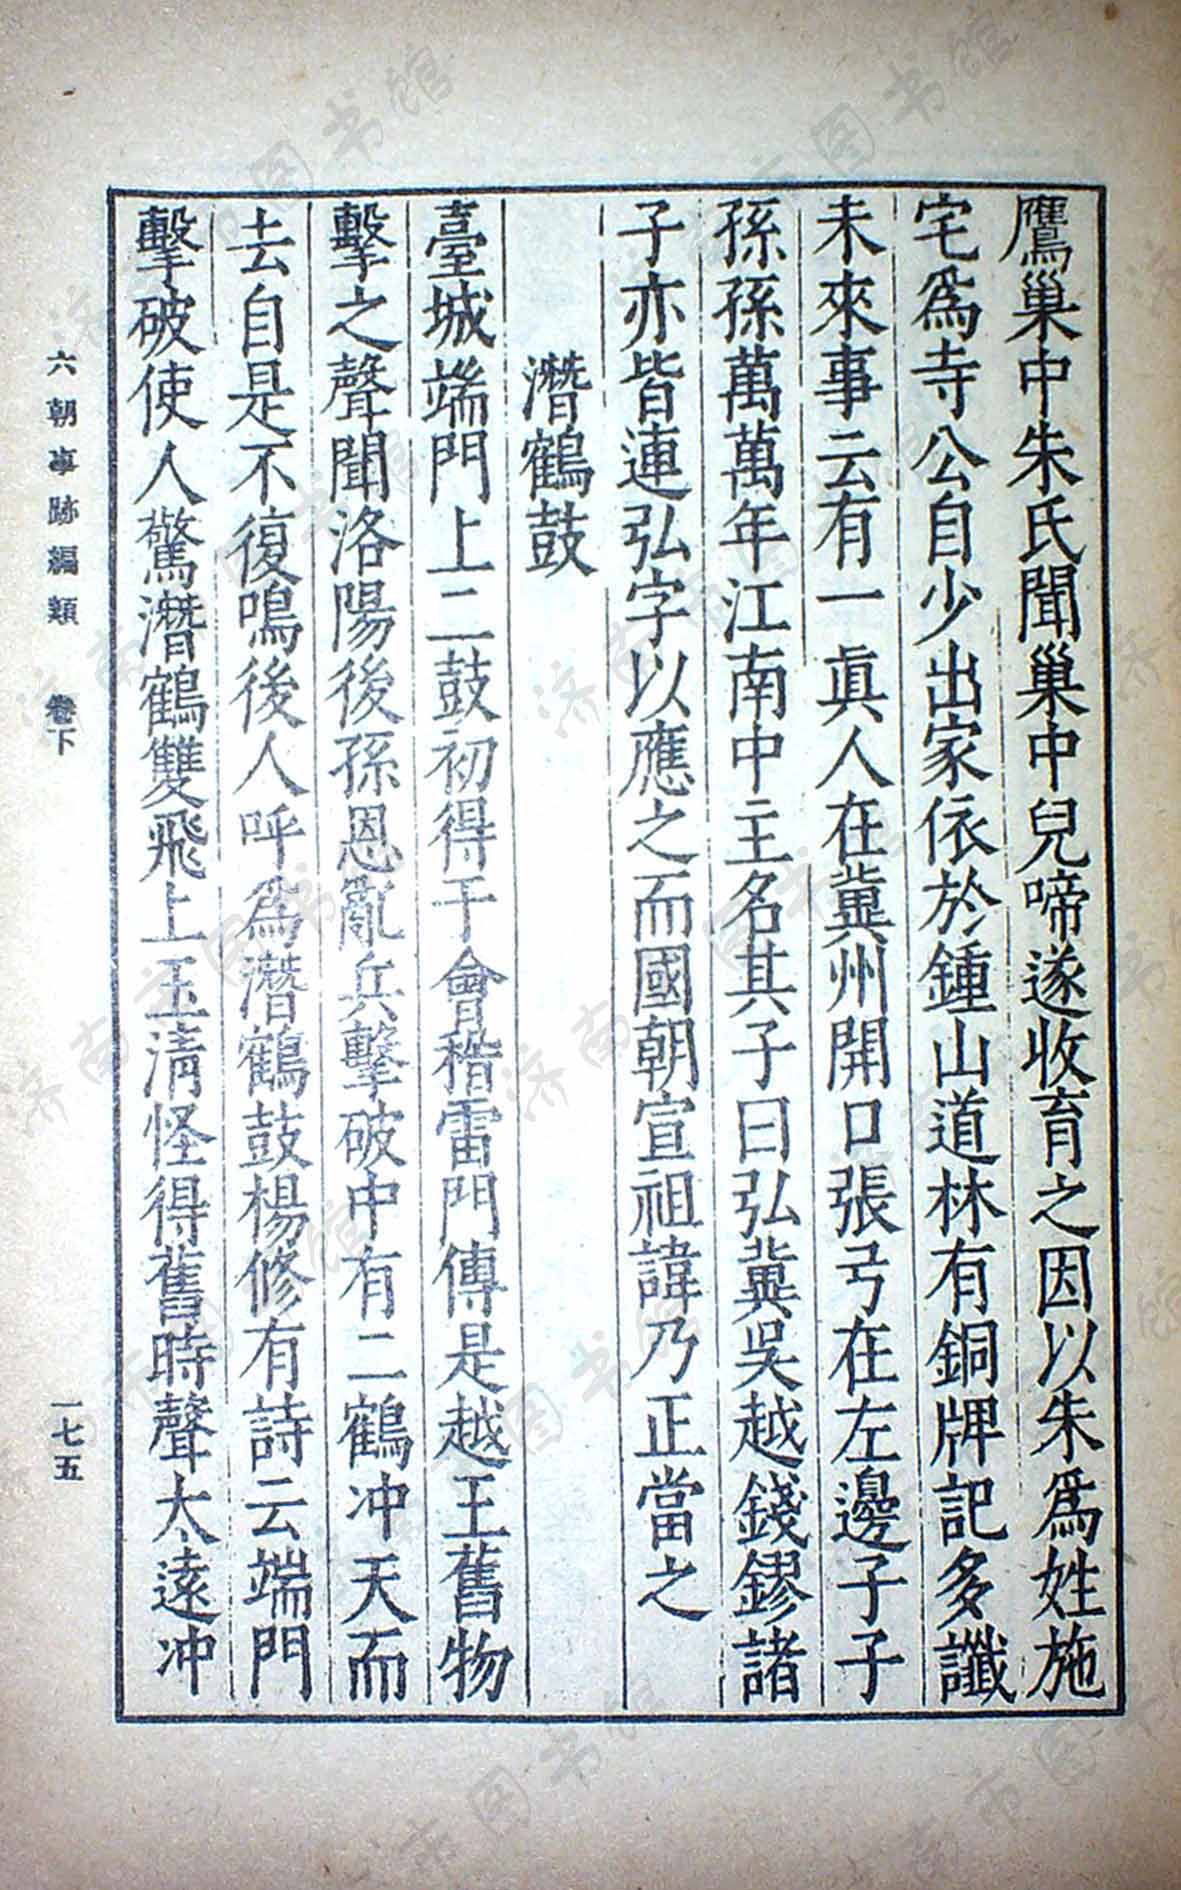 鷹巢中朱氏聞巢中兒啼遂收育之因以朱爲姓施
宅爲寺公自少出家依於鍾山道林有銅牌記多讖
未來事云有一眞人在冀州開口張弓在左邊子子
孫孫萬萬年江南中主名其子曰弘冀吳越錢鏐諸
子亦皆連弘字以應之而國朝宣祖諱乃正當之
潛鶴鼓
臺城端門上二鼓初得于會稽雷門傳是越王舊物
擊之聲聞洛陽後孫恩亂兵擊破中有二鶴冲天而
去自是不復鳴後人呼爲潛鶴鼓楊修有詩云端門
擊破使人驚潛鶴雙飛上玉淸怪得舊時聲大遠冲
六朝事跡編類 卷下
一七五
济南市图书馆